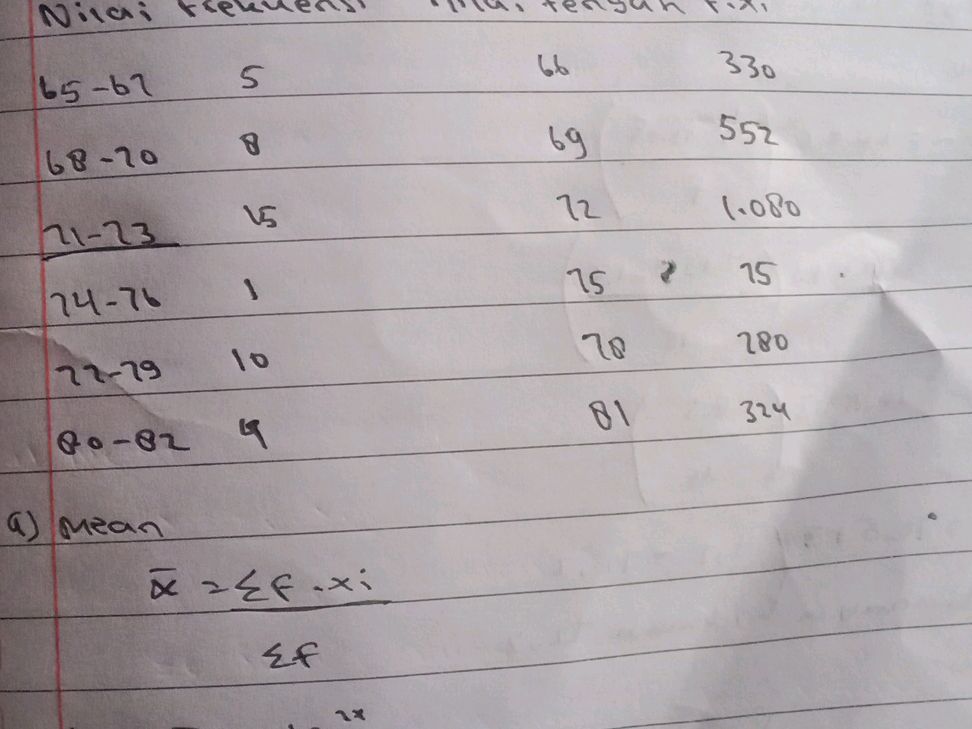 Nilai Frekuensi Nilai tengah F.xi
65-67 5 66 330
68-70 8 69 552
71-73 15 72 1.080
74-76 1 75 75
77-79 10 78 780
80-82 4 81 324
a) Mean
x̄ = Σf.xi
Σf